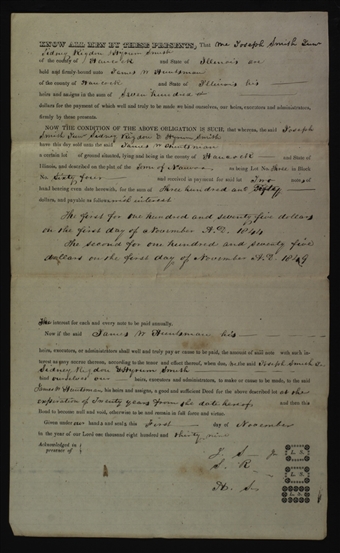 KNOW ALL MEN BY THESE PRESENTS, That We Joseph Smith Jun
Sidney Rigdon & Hyrum Smith
of the county of Hancock and State of Illinois are
held and firmly bound unto James W Huntsman
of the county of Hancock and State of Illinois his
heirs and assigns in the sum of Seven hundred
dollars for the payment of which well and truly to be made we bind ourselves, our heirs, executors and administrators,
firmly by these presents.
NOW THE CONDITION OF THE ABOVE OBLIGATION IS SUCH, that whereas, the said Joseph
Smith Jun Sidney Rigdon & Hyrum Smith
have this day sold unto the said James W Huntsman
a certain lot of ground situated, lying and being in the county of Hancock and State of
Illinois, and described on the plot of the Town of Nauvoo as being Lot No. Three in Block
No. Sixty four and received in payment for said lot Two notes of
hand bearing even date herewith, for the sum of Three hundred and fifty
dollars, and payable as follows with interest
The first for one hundred and seventy five dollars
on the first day of November A.D. 1844
The second for one hundred and seventy five
dollars on the first day of November A.D. 1849
The interest for each and every note to be paid annually.
Now if the said James W Huntsman his
heirs, executors, or administrators shall well and truly pay or cause to be paid, the amount of said note with each interest as may accrue thereon, according to the tenor and effect thereof, when due. As the said Joseph Smith Jr
Sidney Rigdon & Hyrum Smith
bind ourselves our heirs, executors and administrators, to make or cause to be made, to the said
James W Huntsman, his heirs and assigns, a good and sufficient Deed for the above described lot at the
expiration of Twenty years from the date hereof and then this
Bond to become null and void, otherwise to be and remain in full force and virtue.
Given under our hand s and seal s this First day of November
in the year of our Lord one thousand eight hundred and thirty nine
Acknowledged in
presence of
J. S Jr
L. S.
S. R
L. S.
H. S
L. S.